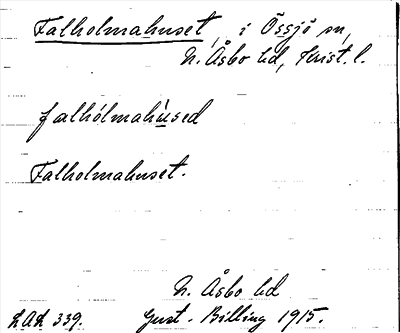 Falholmahuset, i Össjö sn,
N. Åsbo hd, Krist. l.
falhólmahùsed
Falholmahuset.
N. Åsbo hd
LAL 339. Gust. Billing 1915.